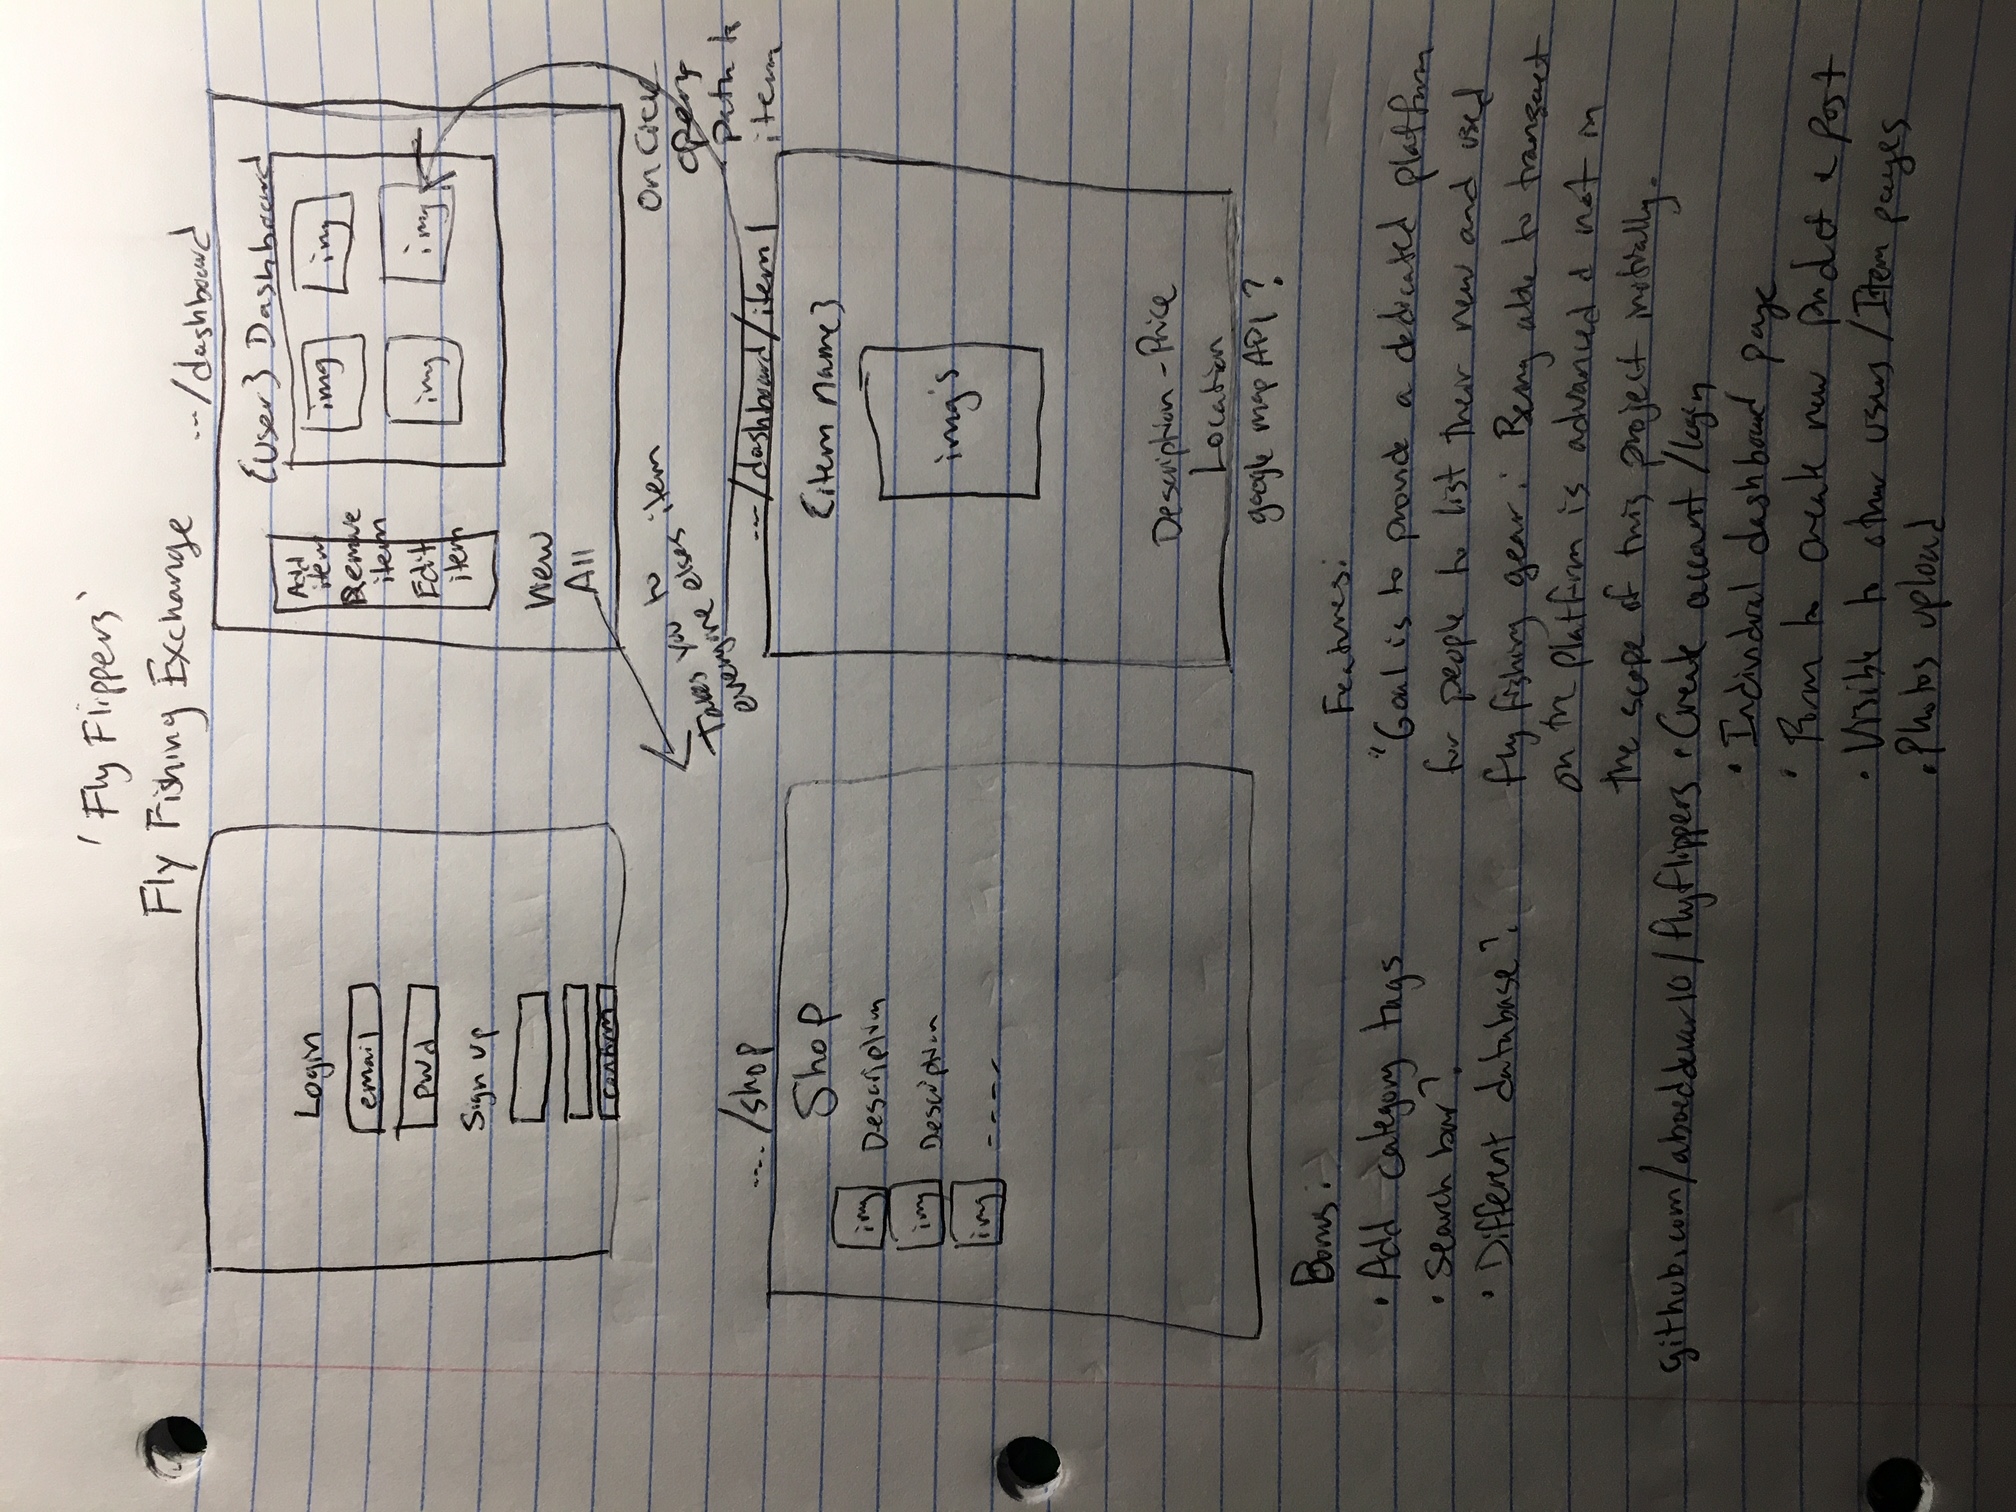 'Fly Flippers'
Fly Fishing Exchange
Login
email
pwd
Sign up
confirm
---/dashboard
{User} Dashboard
Add
item
Remove
item
Edit
item
img
img
img
img
View
All
Takes you to
everyone elses item
On Click
opens
path to
item
..../shop
Shop
img Description
img Description
img ----
---/dashboard/item1
{item name}
img's
Description - Price
Location
google map API?
Bonus:
• Add category tags
• Search bar?
• Different database?
Features:
"Goal is to provide a dedicated platform
for people to list their new and used
fly fishing gear. Being able to transact
on the platform is advanced & not in
the scope of this project initially.
• Create account/login
• Individual dashboard page
• Form to create new product & post
• Visible to other users/Item pages
• Photos upload